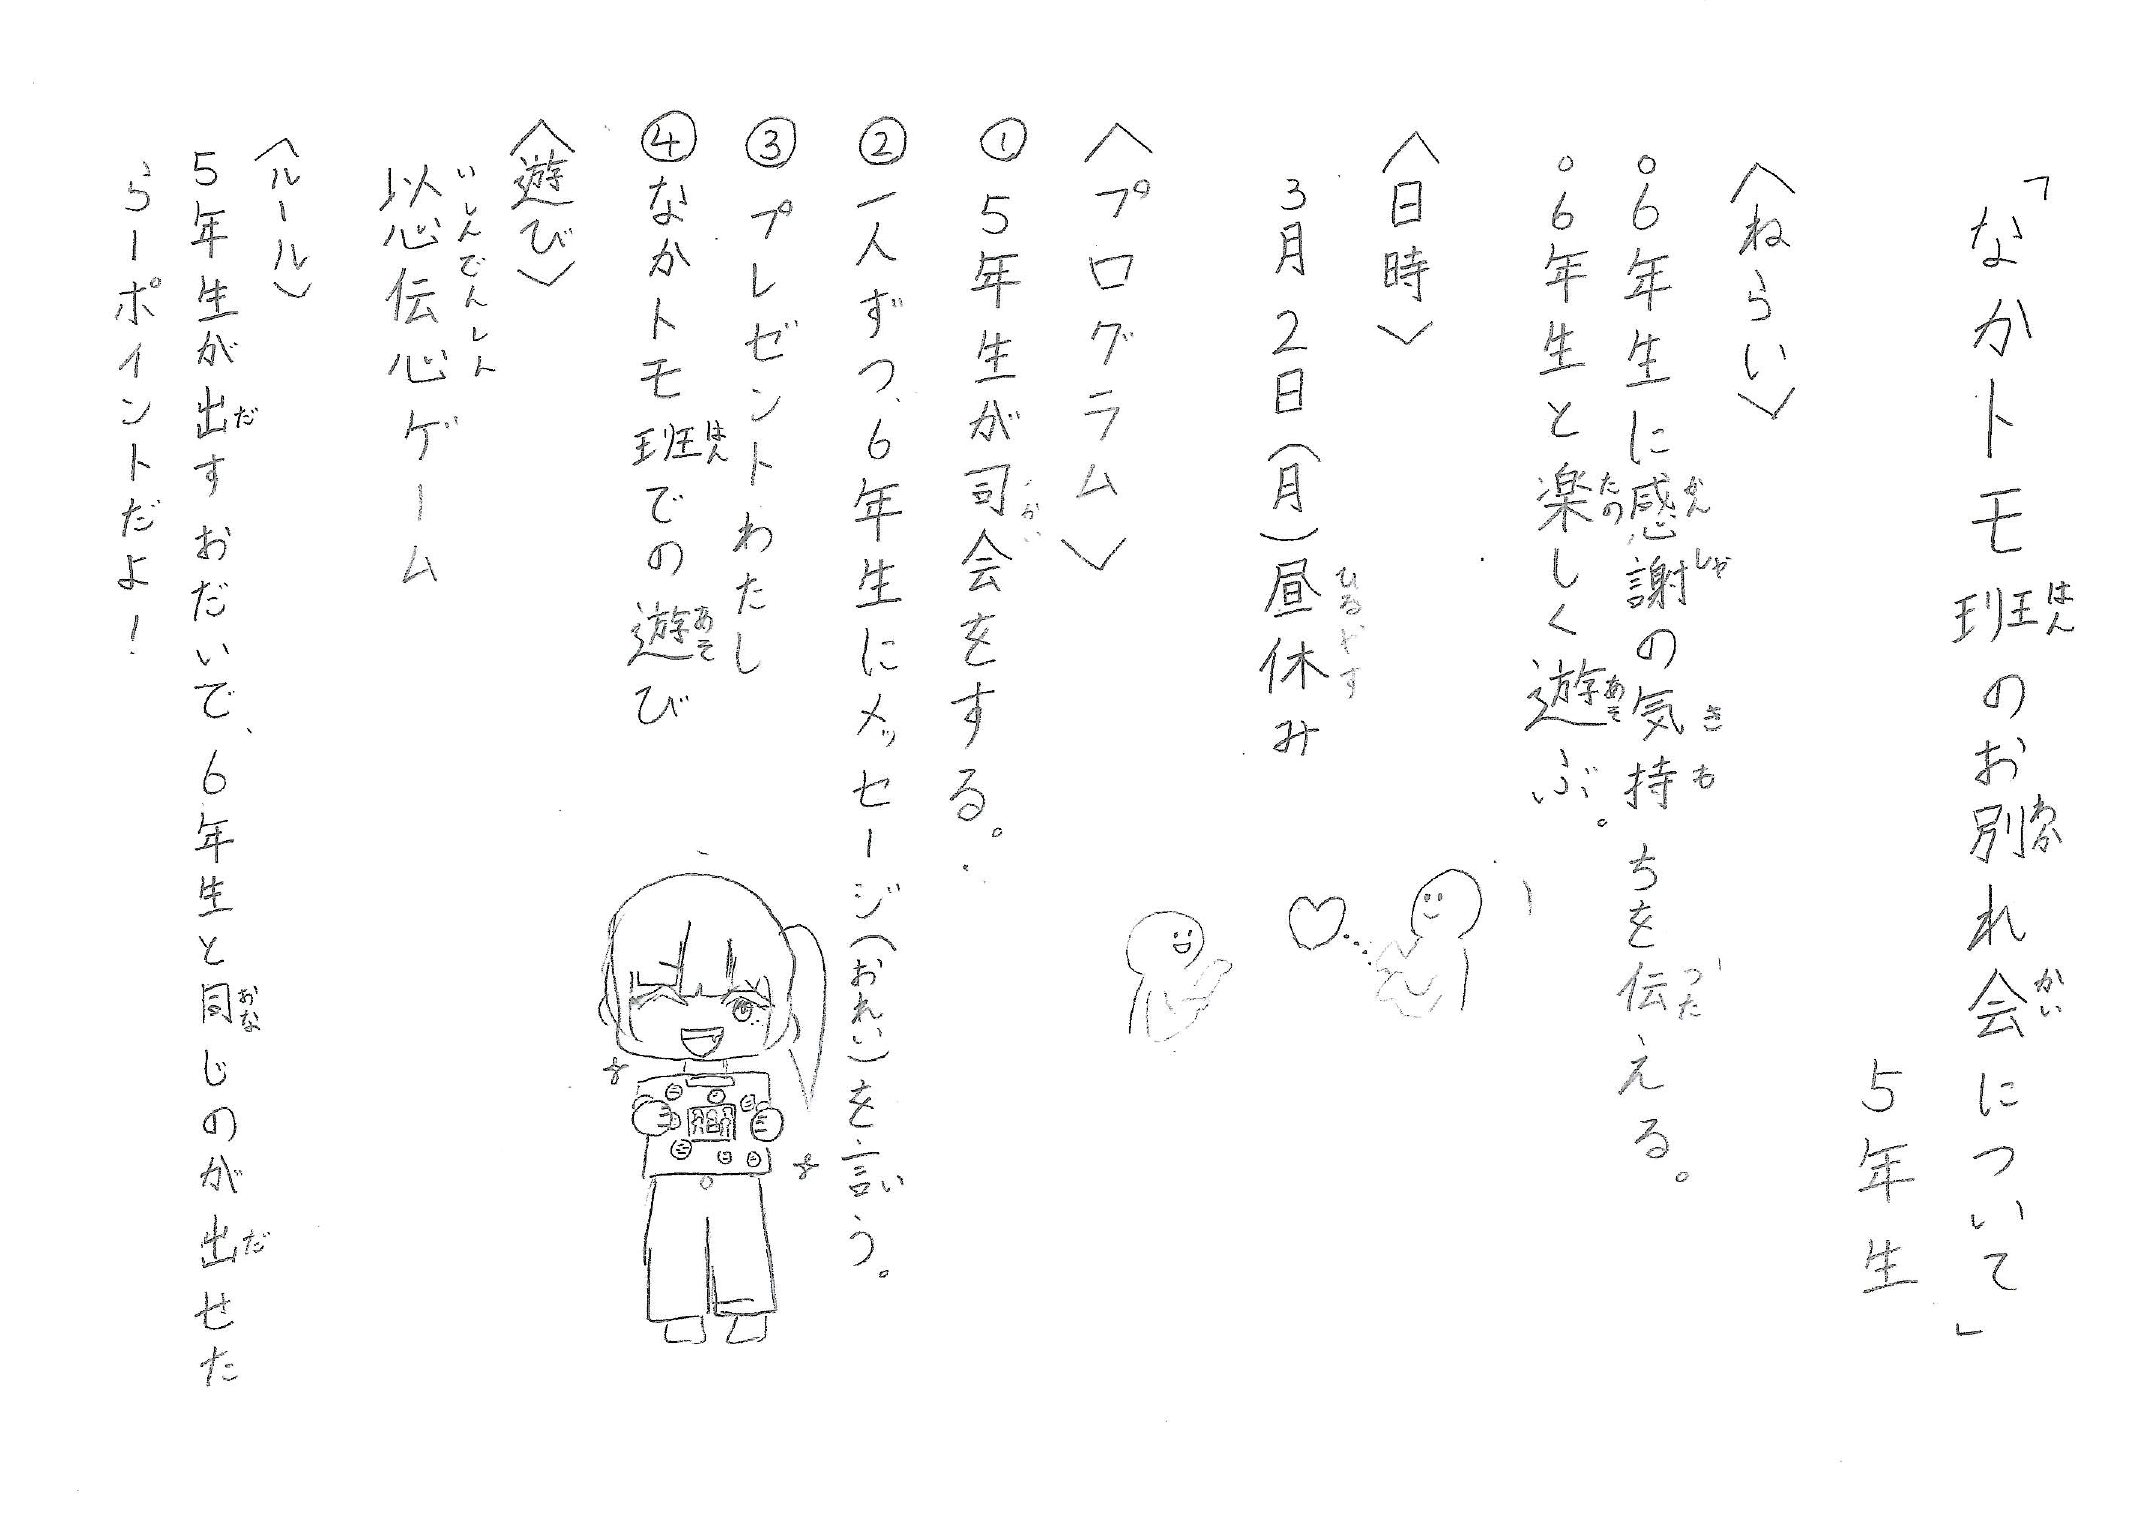 「なかトモ班のお別れ会について」
5年生
〈ねらい〉
○6年生に感謝の気持ちを伝える。
○6年生と楽しく遊ぶ。
〈日時〉
3月2日(月)昼休み
〈プログラム〉
①5年生が司会をする。
②一人ずつ、6年生にメッセージ(おれい)を言う。
③プレゼントわたし
④なかトモ班での遊び
〈遊び〉
以心伝心ゲーム
〈ルール〉
5年生が出すおだいで、6年生と同じのが出せた
ら1ポイントだよ!